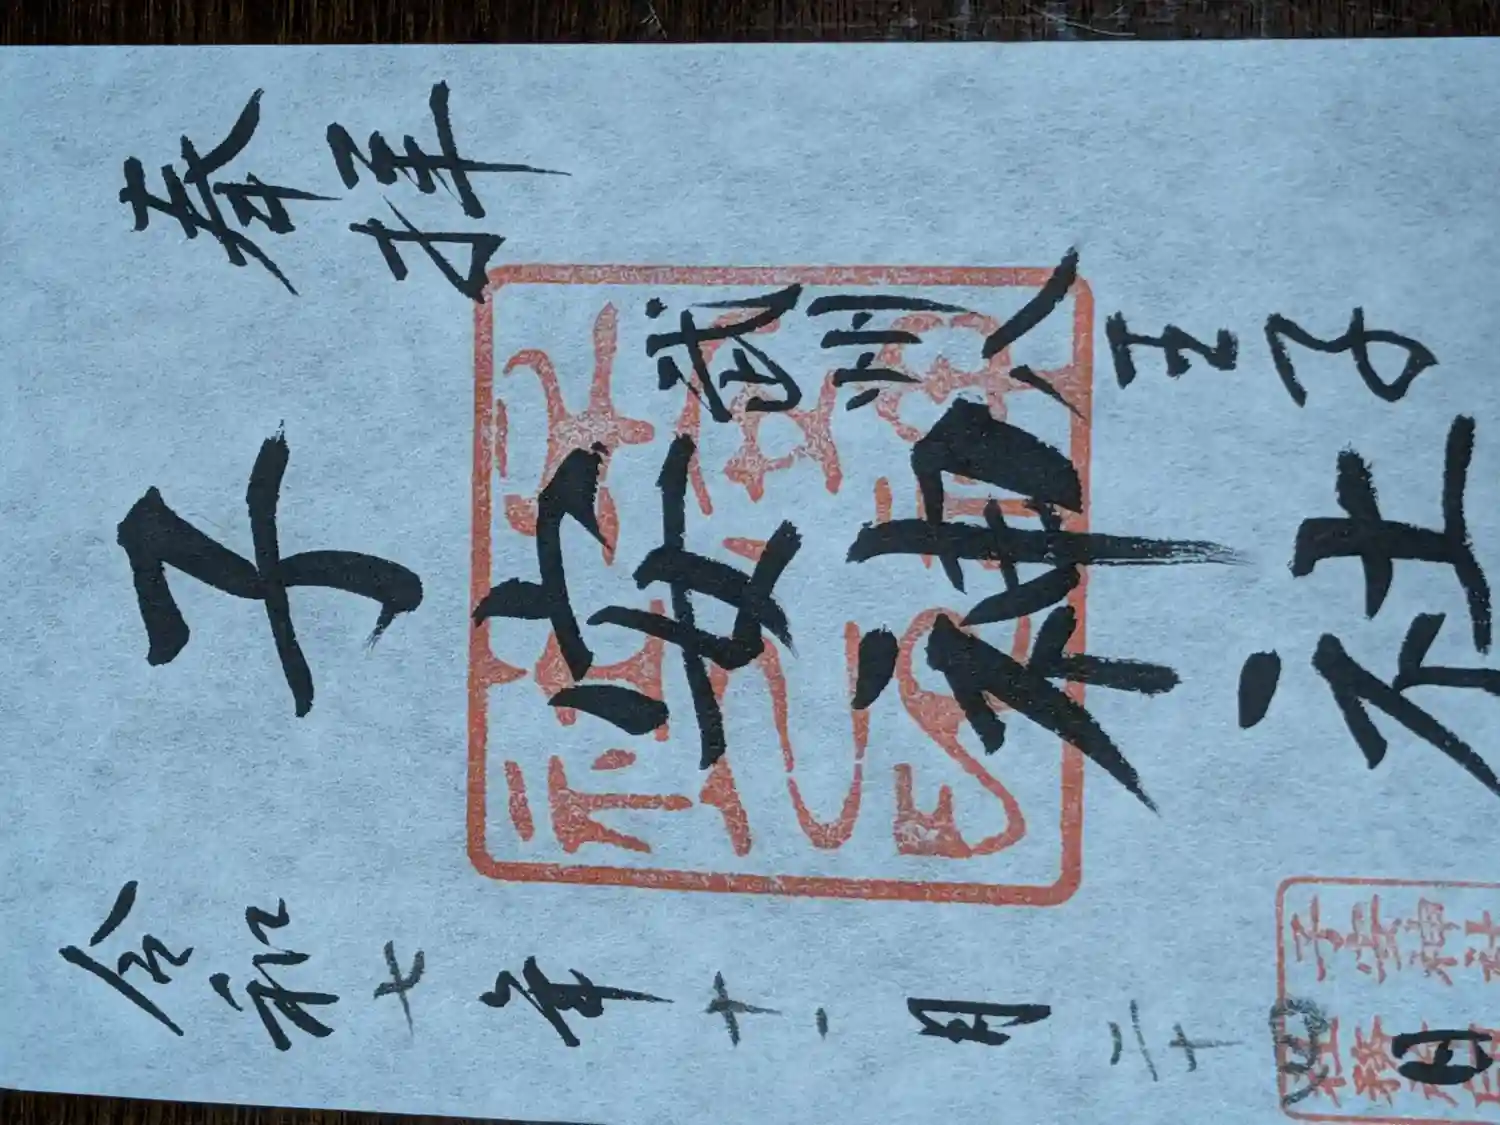 奉拝
武州八王子
子安神社
令和七年十一月二十四日
子安神社
社務所印